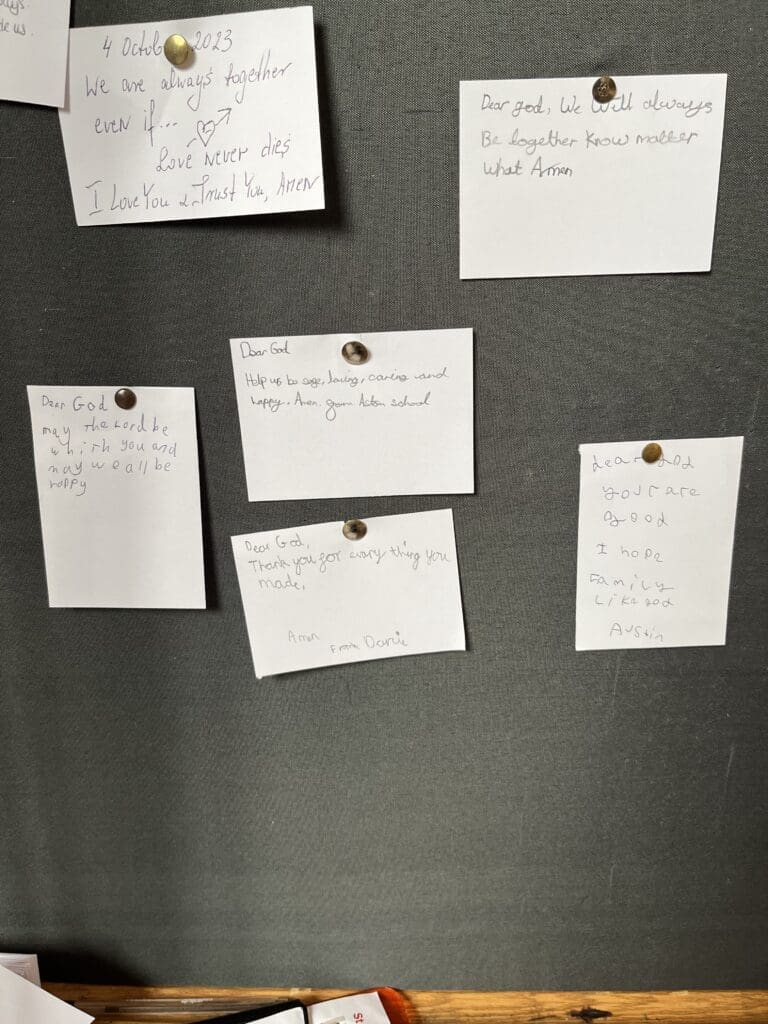 4 Octob , 2023
We are always together
even if...
Love Never dies
I Love You & Trust You, Amen
Dear god, We Will always
Be together Know matter
what Amen
Dear God
Help us be sage, loving, caring and
happy. Amen. from Aston school
Dear God
may the Lord be
whith you and
may we all be
happy
Dear God,
Thank you for every thing you
made,
Amen
From Darcie
dear god
you are
good
I hope
Family
Like god
Austin